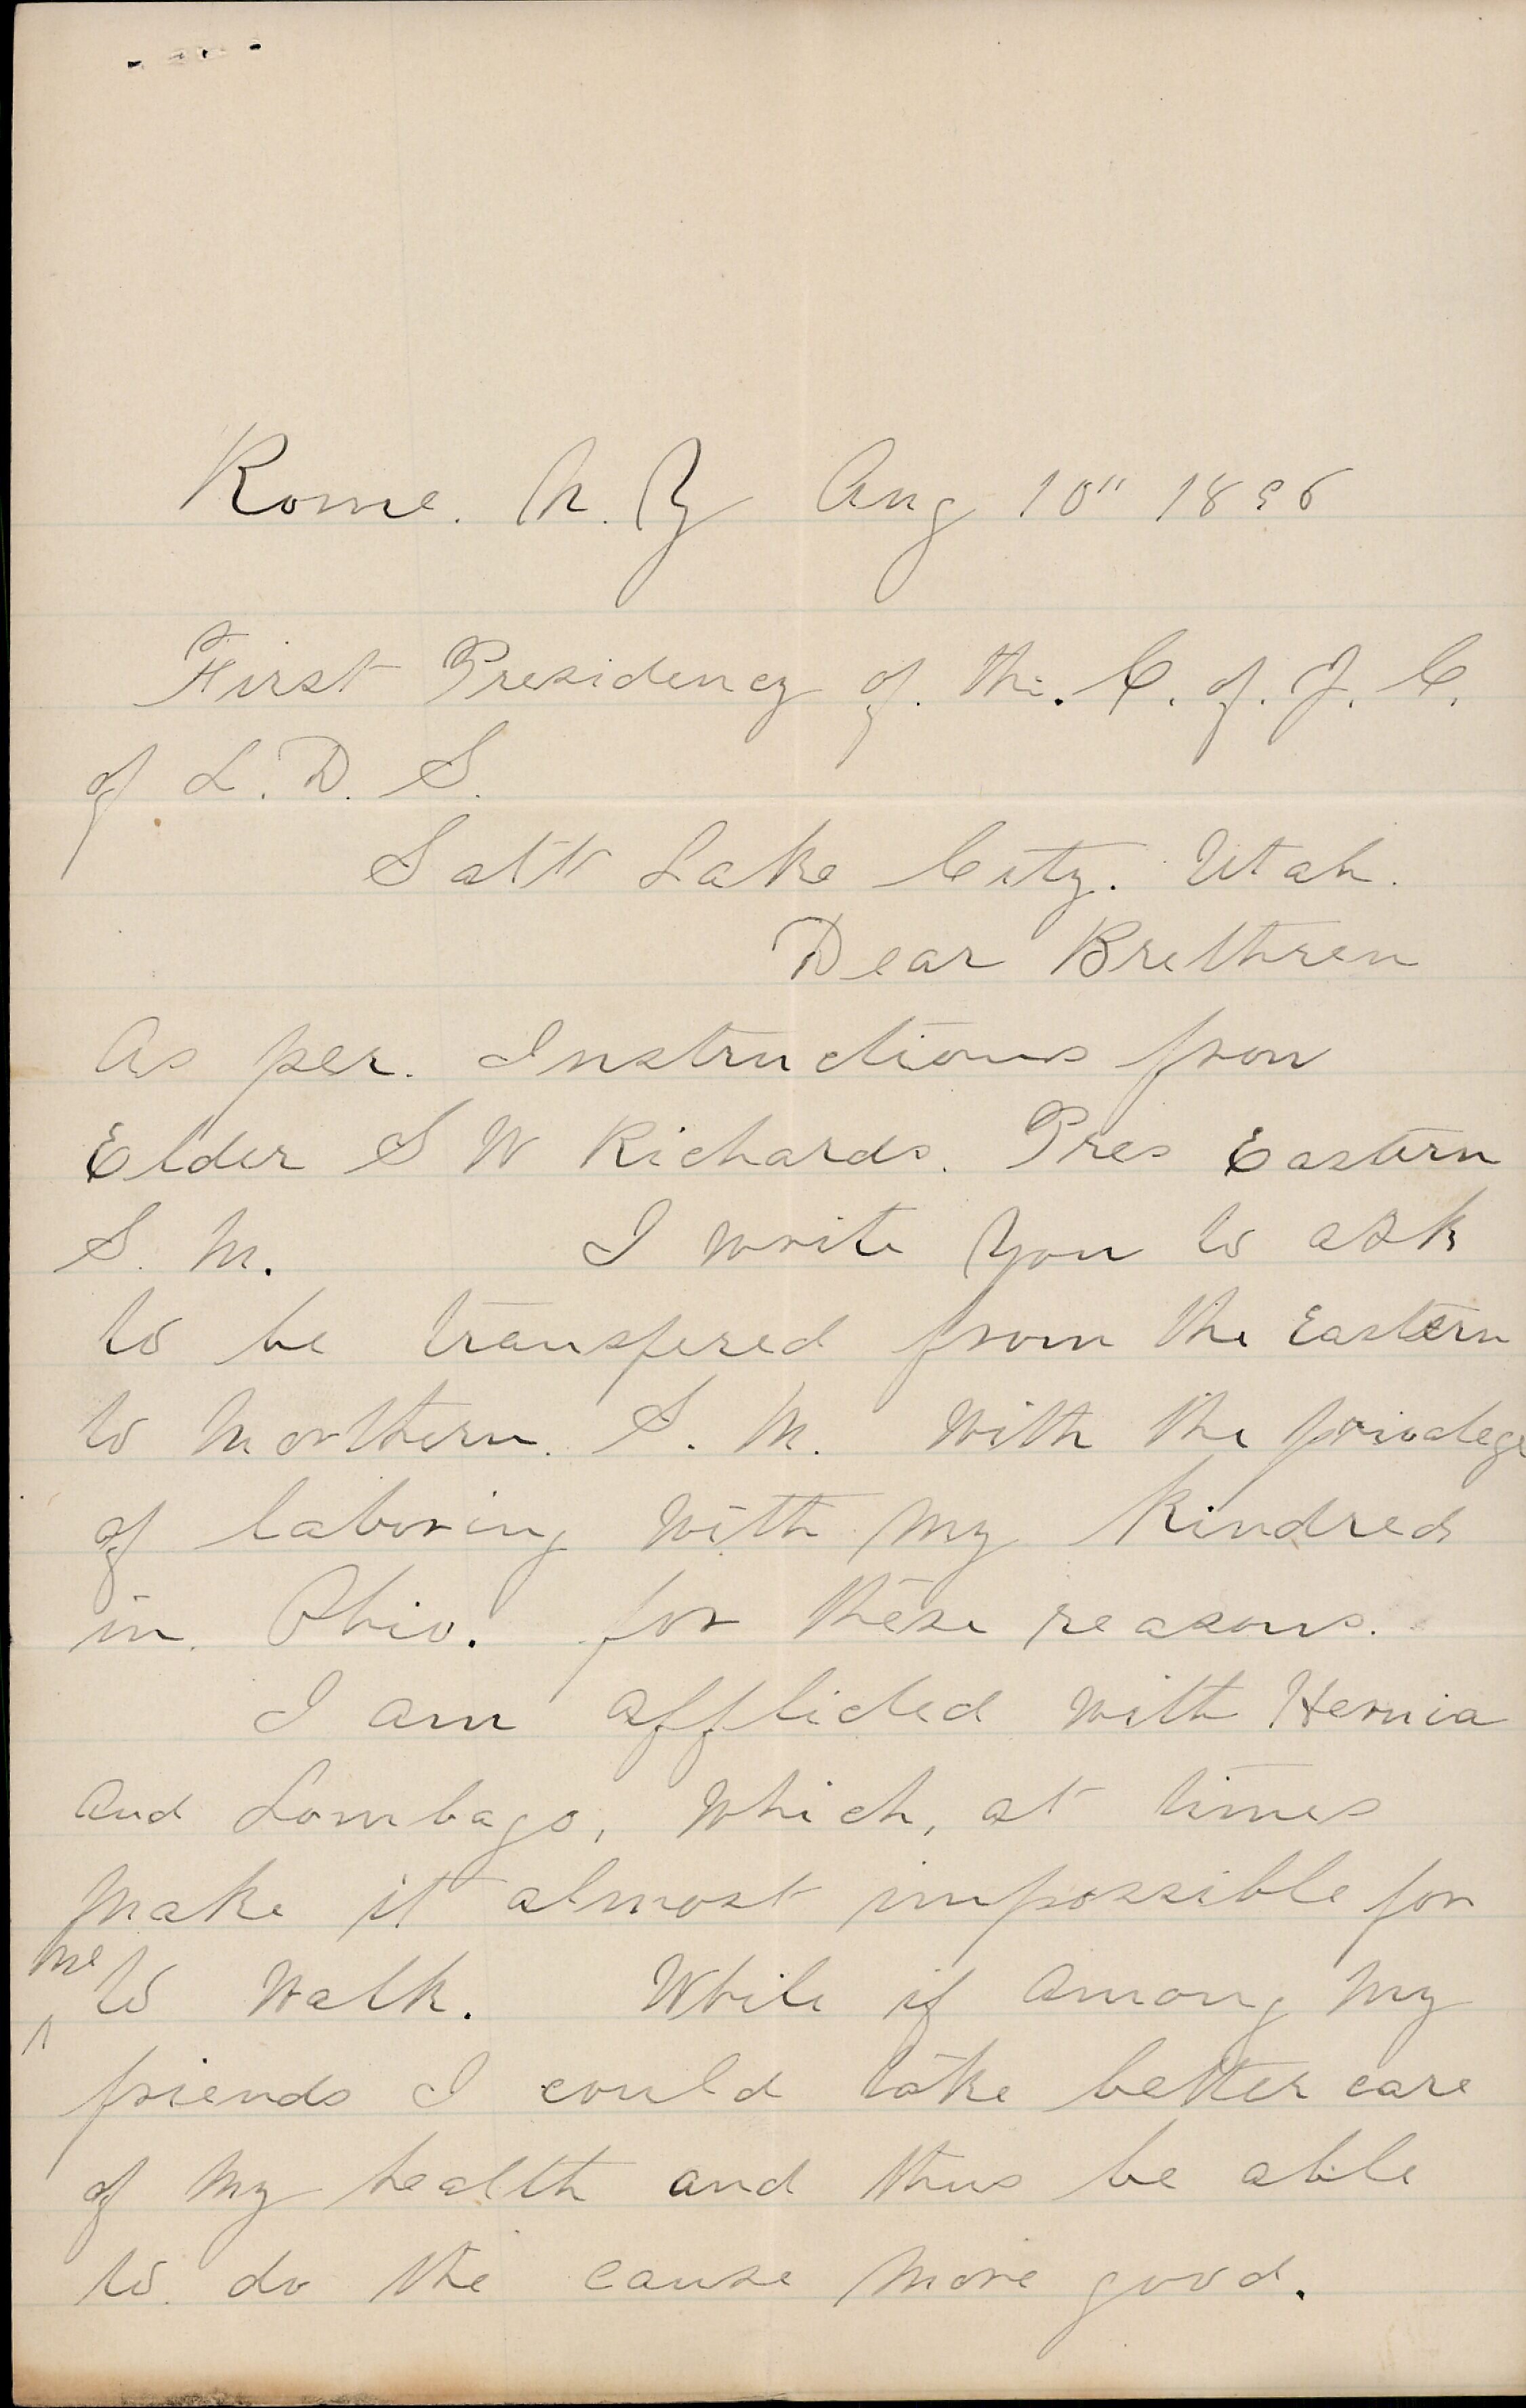 Rome. N. Y Aug 10" 1896
First Presidency of. the. C. of. J. C.
of L. D. S.
Salt Lake City. Utah.
Dear Brethren
As per. Instructions from
Elder S W Richards. Pres Eastern
S. M. I write you to ask
to be transfered from the Eastern
to Northern. S. M. With the privalege
of laboring with my Kindred
in. Ohio. for these reasons.
I am afflicted with Hernia
and Lombago, Which, at times
make it almost impossible for
me
^ to Walk. While if among my
friends I could take better care
of my health and thus be able
to do the cause more good.